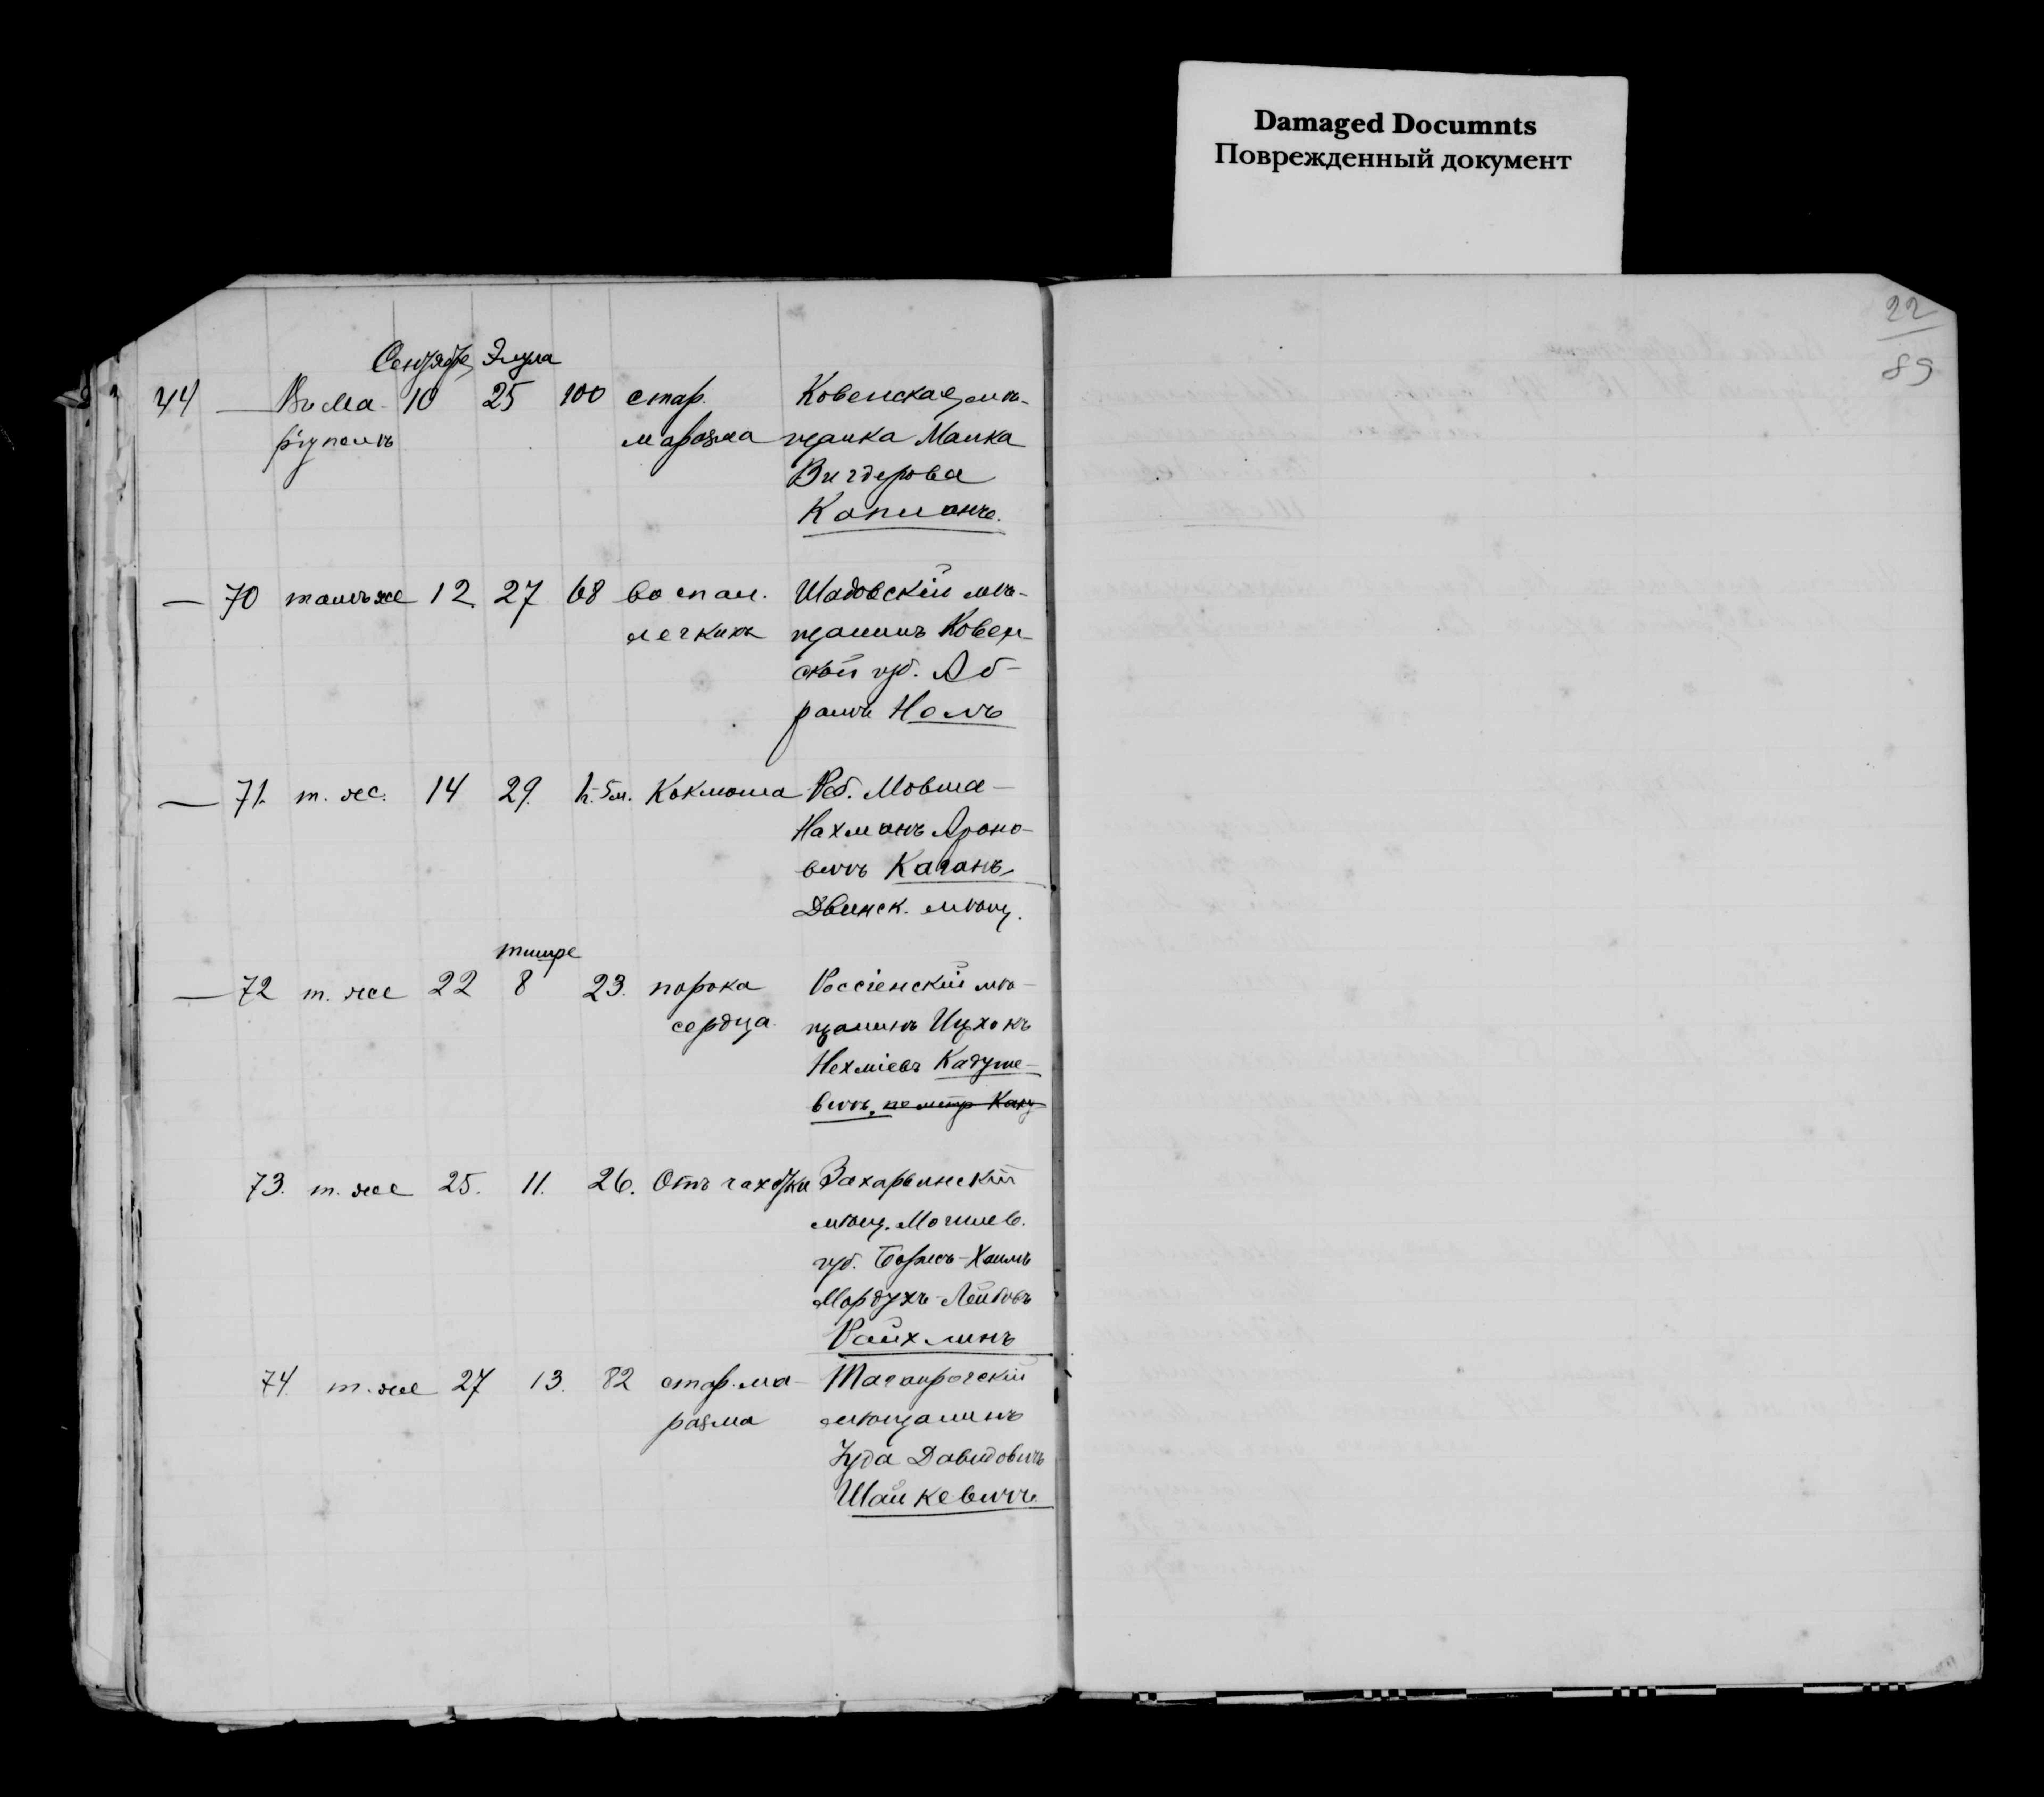 Damaged Documnts
Поврежденный документ
22
89
Сентябрь Элула
44 — Въ Ма- 10 25 100 стар. Ковенская мѣ-
ріуполѣ маразма щанка Малка
Вигдерова
Капланъ.
— 70 тамъ же 12. 27 68 воспал. Шадовскій мѣ-
легкихъ щанинъ Ковен-
ской губ. Аб-
рамъ
— 71. т. же. 14 29. 5 м. Коклюша Реб. Мовша-
Нахманъ Ароно-
вичъ Каганъ,
Двинск. мѣщ.
тишре
— 72 т. же 22 8 23. порока Россіенскій мѣ-
сердца. щанинъ Ицхокъ
Нехміевъ Кадуше-
вичъ, по метр
73. т. же 25. 11. 26. Отъ чахотки Захарьинскій
мѣщ. Могилев.
губ. Борисъ-Хаимъ
Мордухъ-Лейбовъ
Райхлинъ
74. т. же 27 13. 82 стар. ма- Таганрогскій
разма мѣщанинъ
Іуда Давидовичъ
Шайкевичъ.